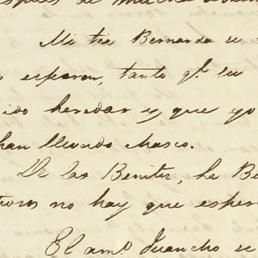 Mi tia Bernarda se
esperan, tanto qe su
ido heredar y que yo
han llevado chasco.
De los Benitez, la Be
tros no hay que esper
El amo Juancho se